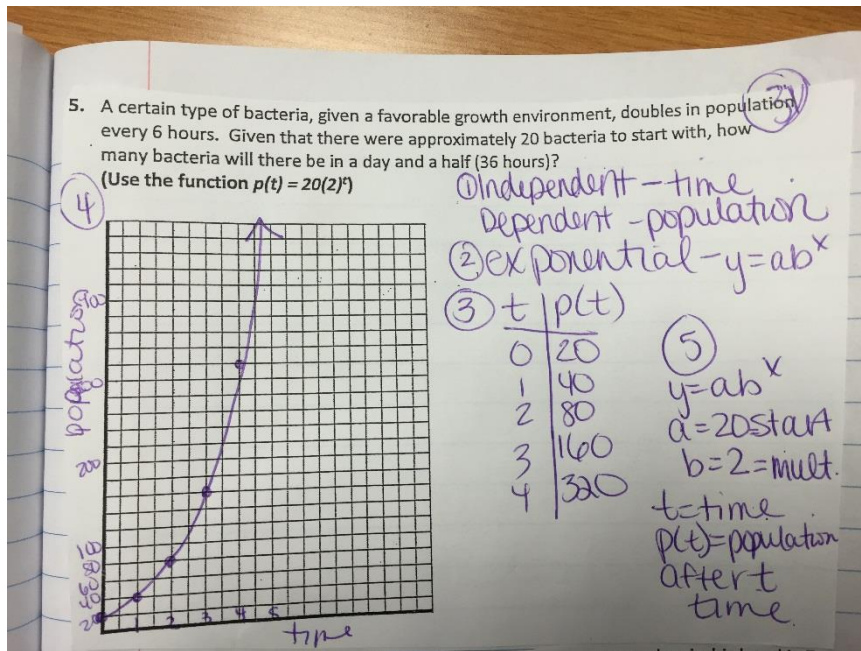 5. A certain type of bacteria, given a favorable growth environment, doubles in population
every 6 hours. Given that there were approximately 20 bacteria to start with, how
many bacteria will there be in a day and a half (36 hours)?
(Use the function p(t) = 20(2)ᵗ)
① Independent - time
Dependent - population
② exponential - y=abˣ
③ t | p(t)
0 | 20
1 | 40
2 | 80
3 | 160
4 | 320
④
population
200
1 2 3 4 5
time
⑤
y=abˣ
a=20 start
b=2=mult.
t=time
p(t)=population
after t
time.